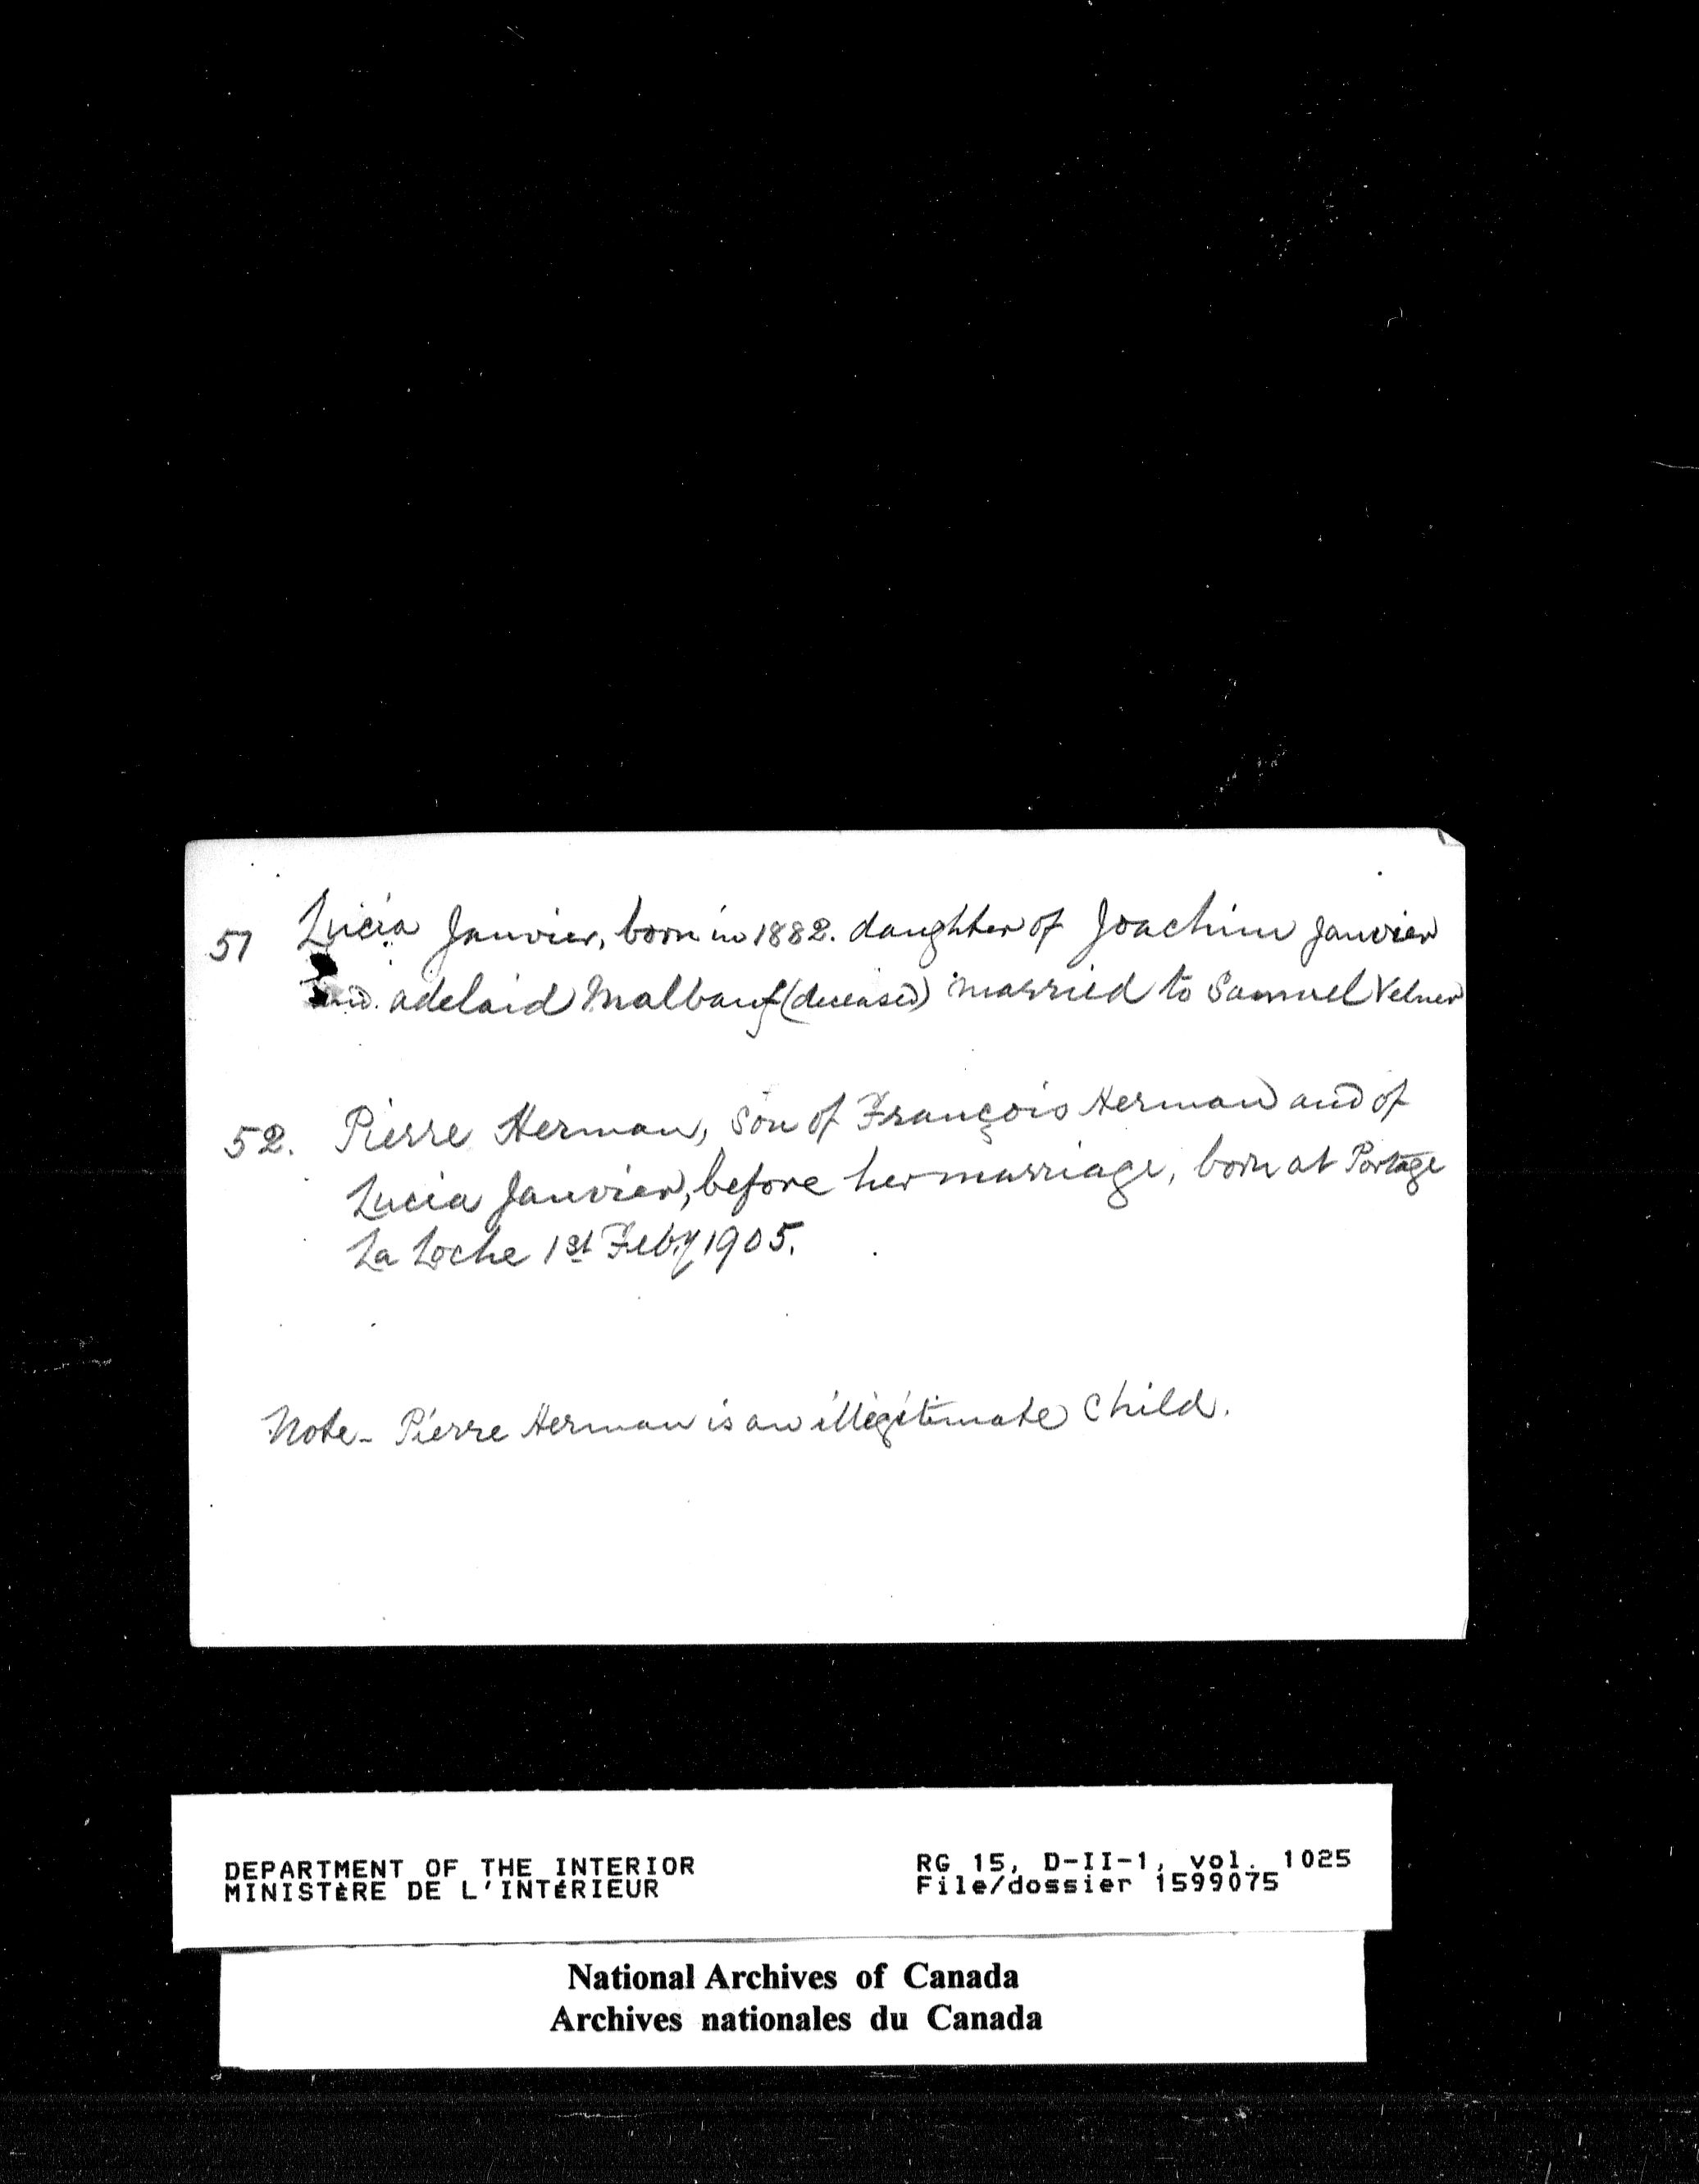 51 Lucia Janvier, born in 1882. daughter of Joachim Janvier
and. adelaid Malbauf (deceased) married to Samuel Velner
52. Pierre Herman, son of François Herman and of
Lucia Janvier, before her marriage, born at Portage
La Loche 1st Feb.y 1905.
Note - Pierre Herman is an illegitimate child.
DEPARTMENT OF THE INTERIOR RG 15, D-II-1, vol. 1025
MINISTÈRE DE L'INTÉRIEUR File/dossier 1599075
National Archives of Canada
Archives nationales du Canada